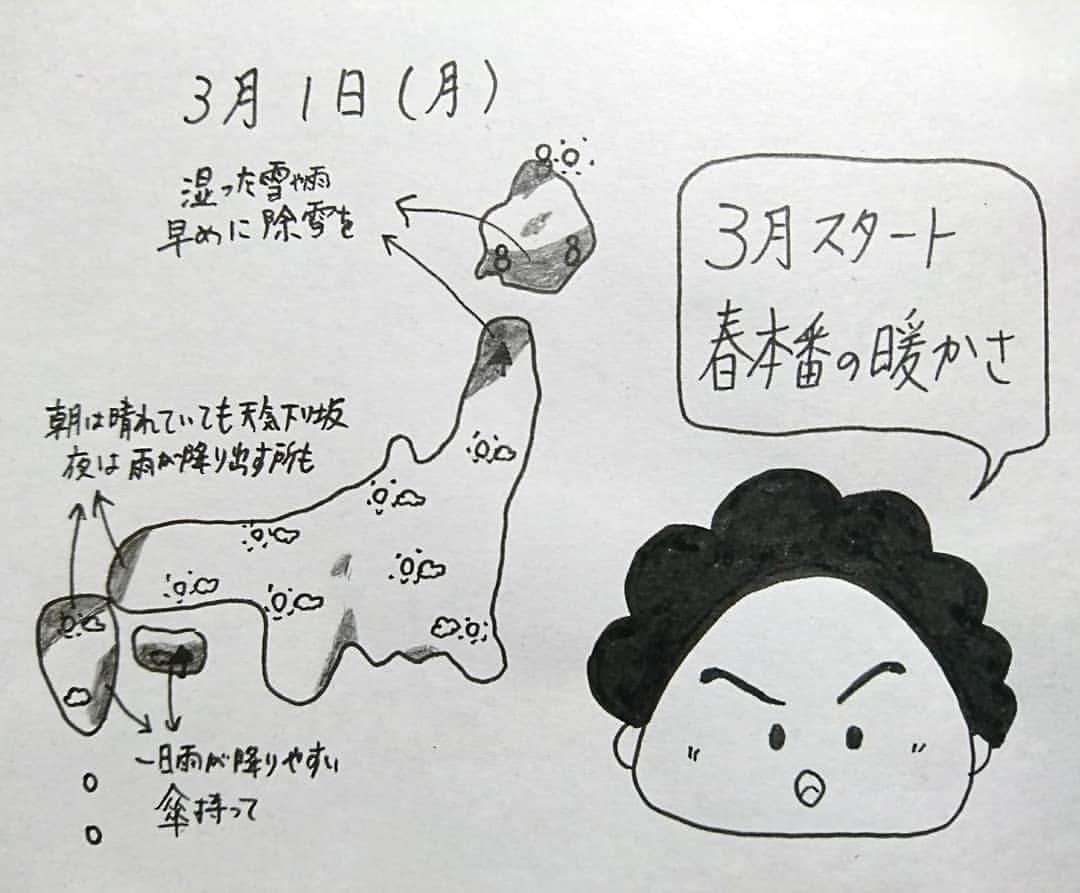 3月1日(月)
湿った雪や雨
早めに除雪を
3月スタート
春本番の暖かさ
朝は晴れていても天気下り坂
夜は雨が降り出す所も
一日雨が降りやすい
傘持って